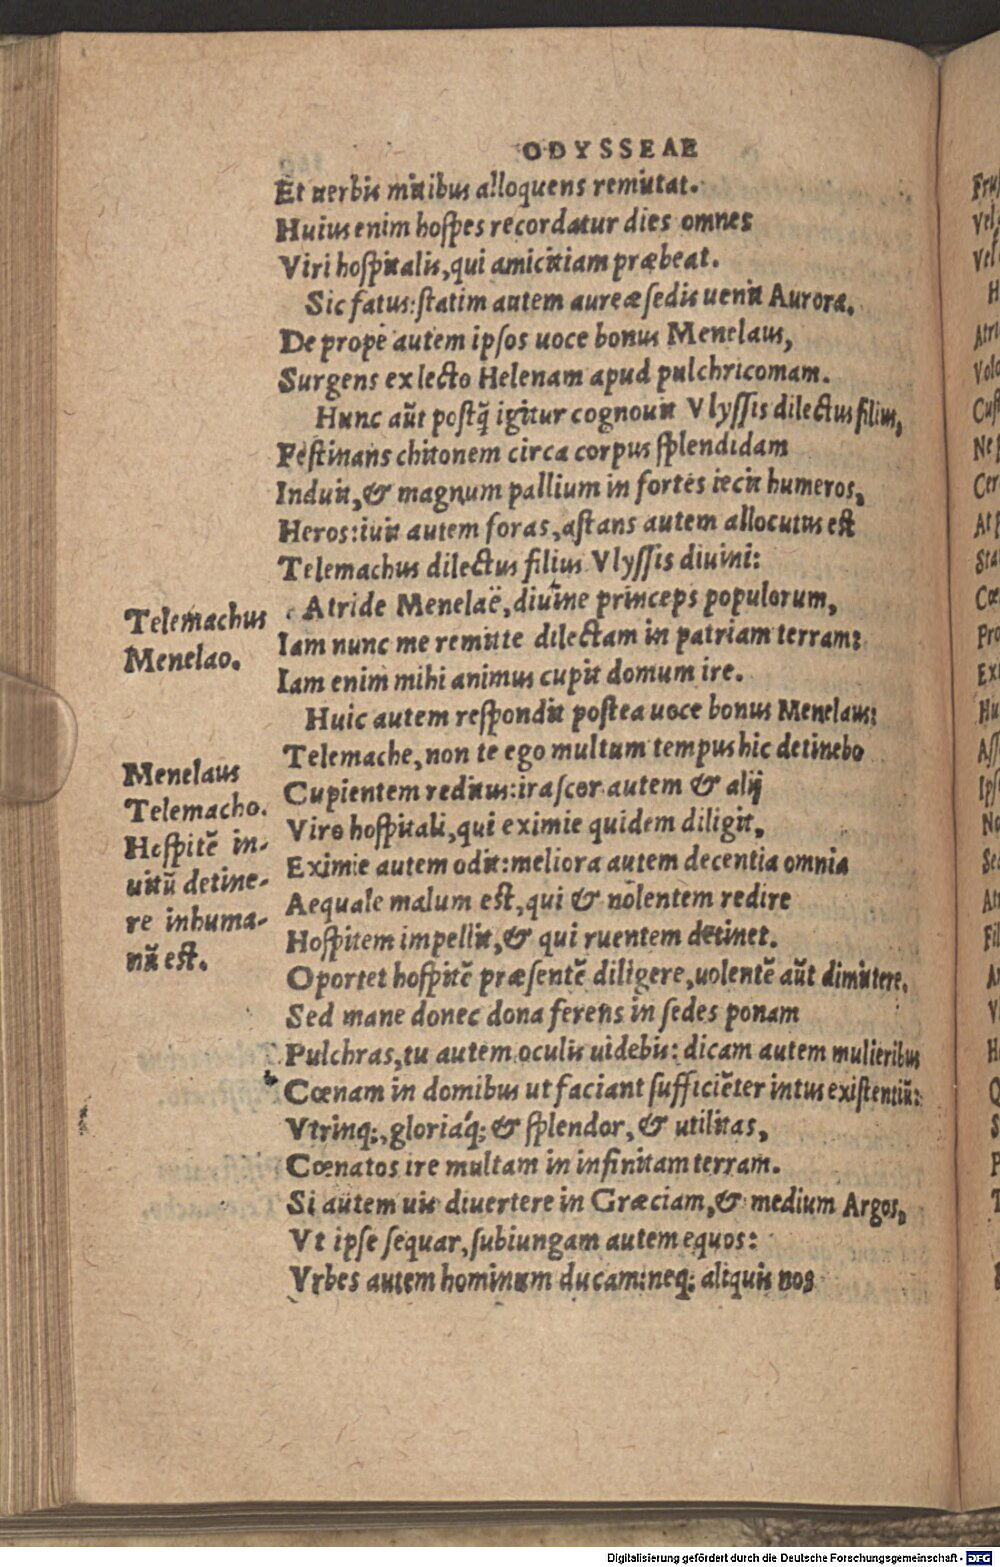 ODYSSEAE
Et uerbis mitibus alloquens remittat.
Huius enim hospes recordatur dies omnes
Viri hospitalis, qui amicitiam præbeat.
Sic fatus: statim autem aureæ sedis uenit Aurora.
De prope autem ipsos uoce bonus Menelaus,
Surgens ex lecto Helenam apud pulchricomam.
Hunc aũt postq̃ igitur cognouit Vlyssis dilectus filius,
Festinans chitonem circa corpus splendidam
Induit, & magnum pallium in fortes iecit humeros,
Heros: iuit autem foras, astans autem allocutus est
Telemachus dilectus filius Vlyssis diuini:
Telemachus
Menelao.
Atride Menelaë, diuine princeps populorum,
Iam nunc me remitte dilectam in patriam terram:
Iam enim mihi animus cupit domum ire.
Huic autem respondit postea uoce bonus Menelaus:
Menelaus
Telemacho.
Hospitẽ in-
uitũ detine-
re inhuma-
nũ est.
Telemache, non te ego multum tempus hic detinebo
Cupientem reditus: irascor autem & alij
Viro hospitali, qui eximie quidem diligit,
Eximie autem odit: meliora autem decentia omnia
Aequale malum est, qui & nolentem redire
Hospitem impellit, & qui ruentem detinet.
Oportet hospitẽ præsentẽ diligere, uolentẽ aũt dimittere.
Sed mane donec dona ferens in sedes ponam
Pulchras, tu autem oculis uidebis: dicam autem mulieribus
Cœnam in domibus ut faciant sufficiẽter intus existentiũ:
Vtrinq;, gloriáq; & splendor, & utilitas,
Cœnatos ire multam in infinitam terram.
Si autem uis diuertere in Græciam, & medium Argos,
Vt ipse sequar, subiungam autem equos:
Vrbes autem hominum ducam: neq; aliquis nos
Digitalisierung gefördert durch die Deutsche Forschungsgemeinschaft - DFG